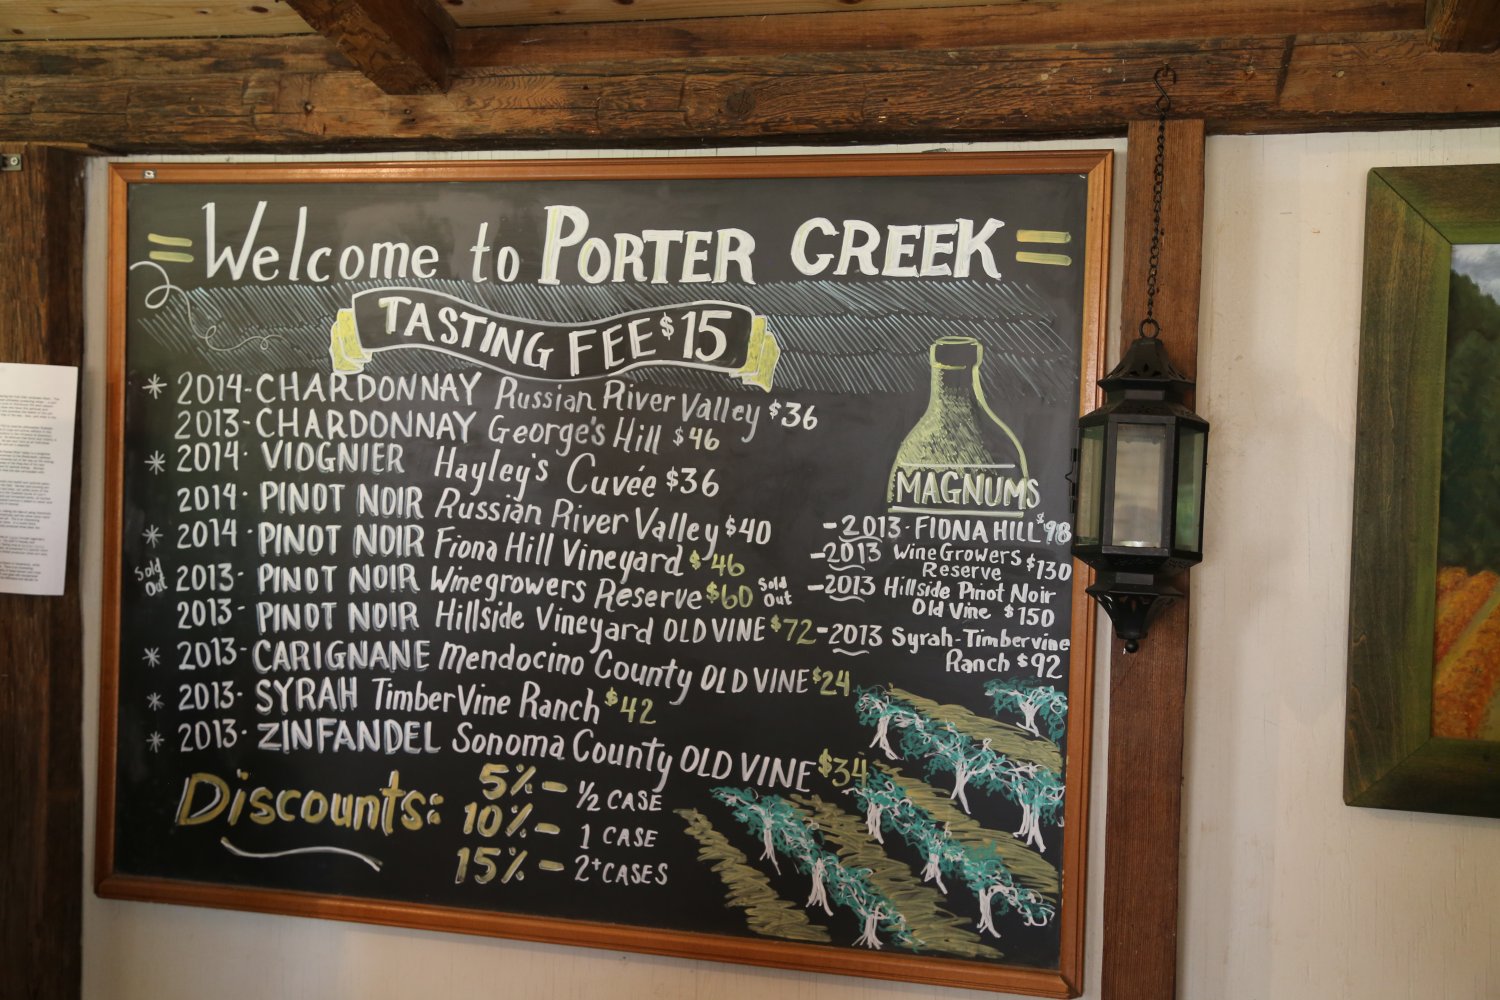 = Welcome to PORTER CREEK =
TASTING FEE $15
* 2014-CHARDONNAY Russian River Valley $36
2013-CHARDONNAY George's Hill $46
* 2014- VIOGNIER Hayley's Cuvée $36
2014- PINOT NOIR Russian River Valley $40
* 2014- PINOT NOIR Fiona Hill Vineyard $46
Sold Out 2013- PINOT NOIR Winegrowers Reserve $60 Sold Out
2013- PINOT NOIR Hillside Vineyard OLD VINE $72
* 2013- CARIGNANE Mendocino County OLD VINE $24
* 2013- SYRAH TimberVine Ranch $42
* 2013- ZINFANDEL Sonoma County OLD VINE $34
MAGNUMS
-2013-FIONA HILL $98
-2013 WineGrowers $130
Reserve
-2013 Hillside Pinot Noir
Old Vine $150
-2013 Syrah-Timbervine
Ranch $92
Discounts: 5% - 1/2 CASE
10% - 1 CASE
15% - 2+ CASES